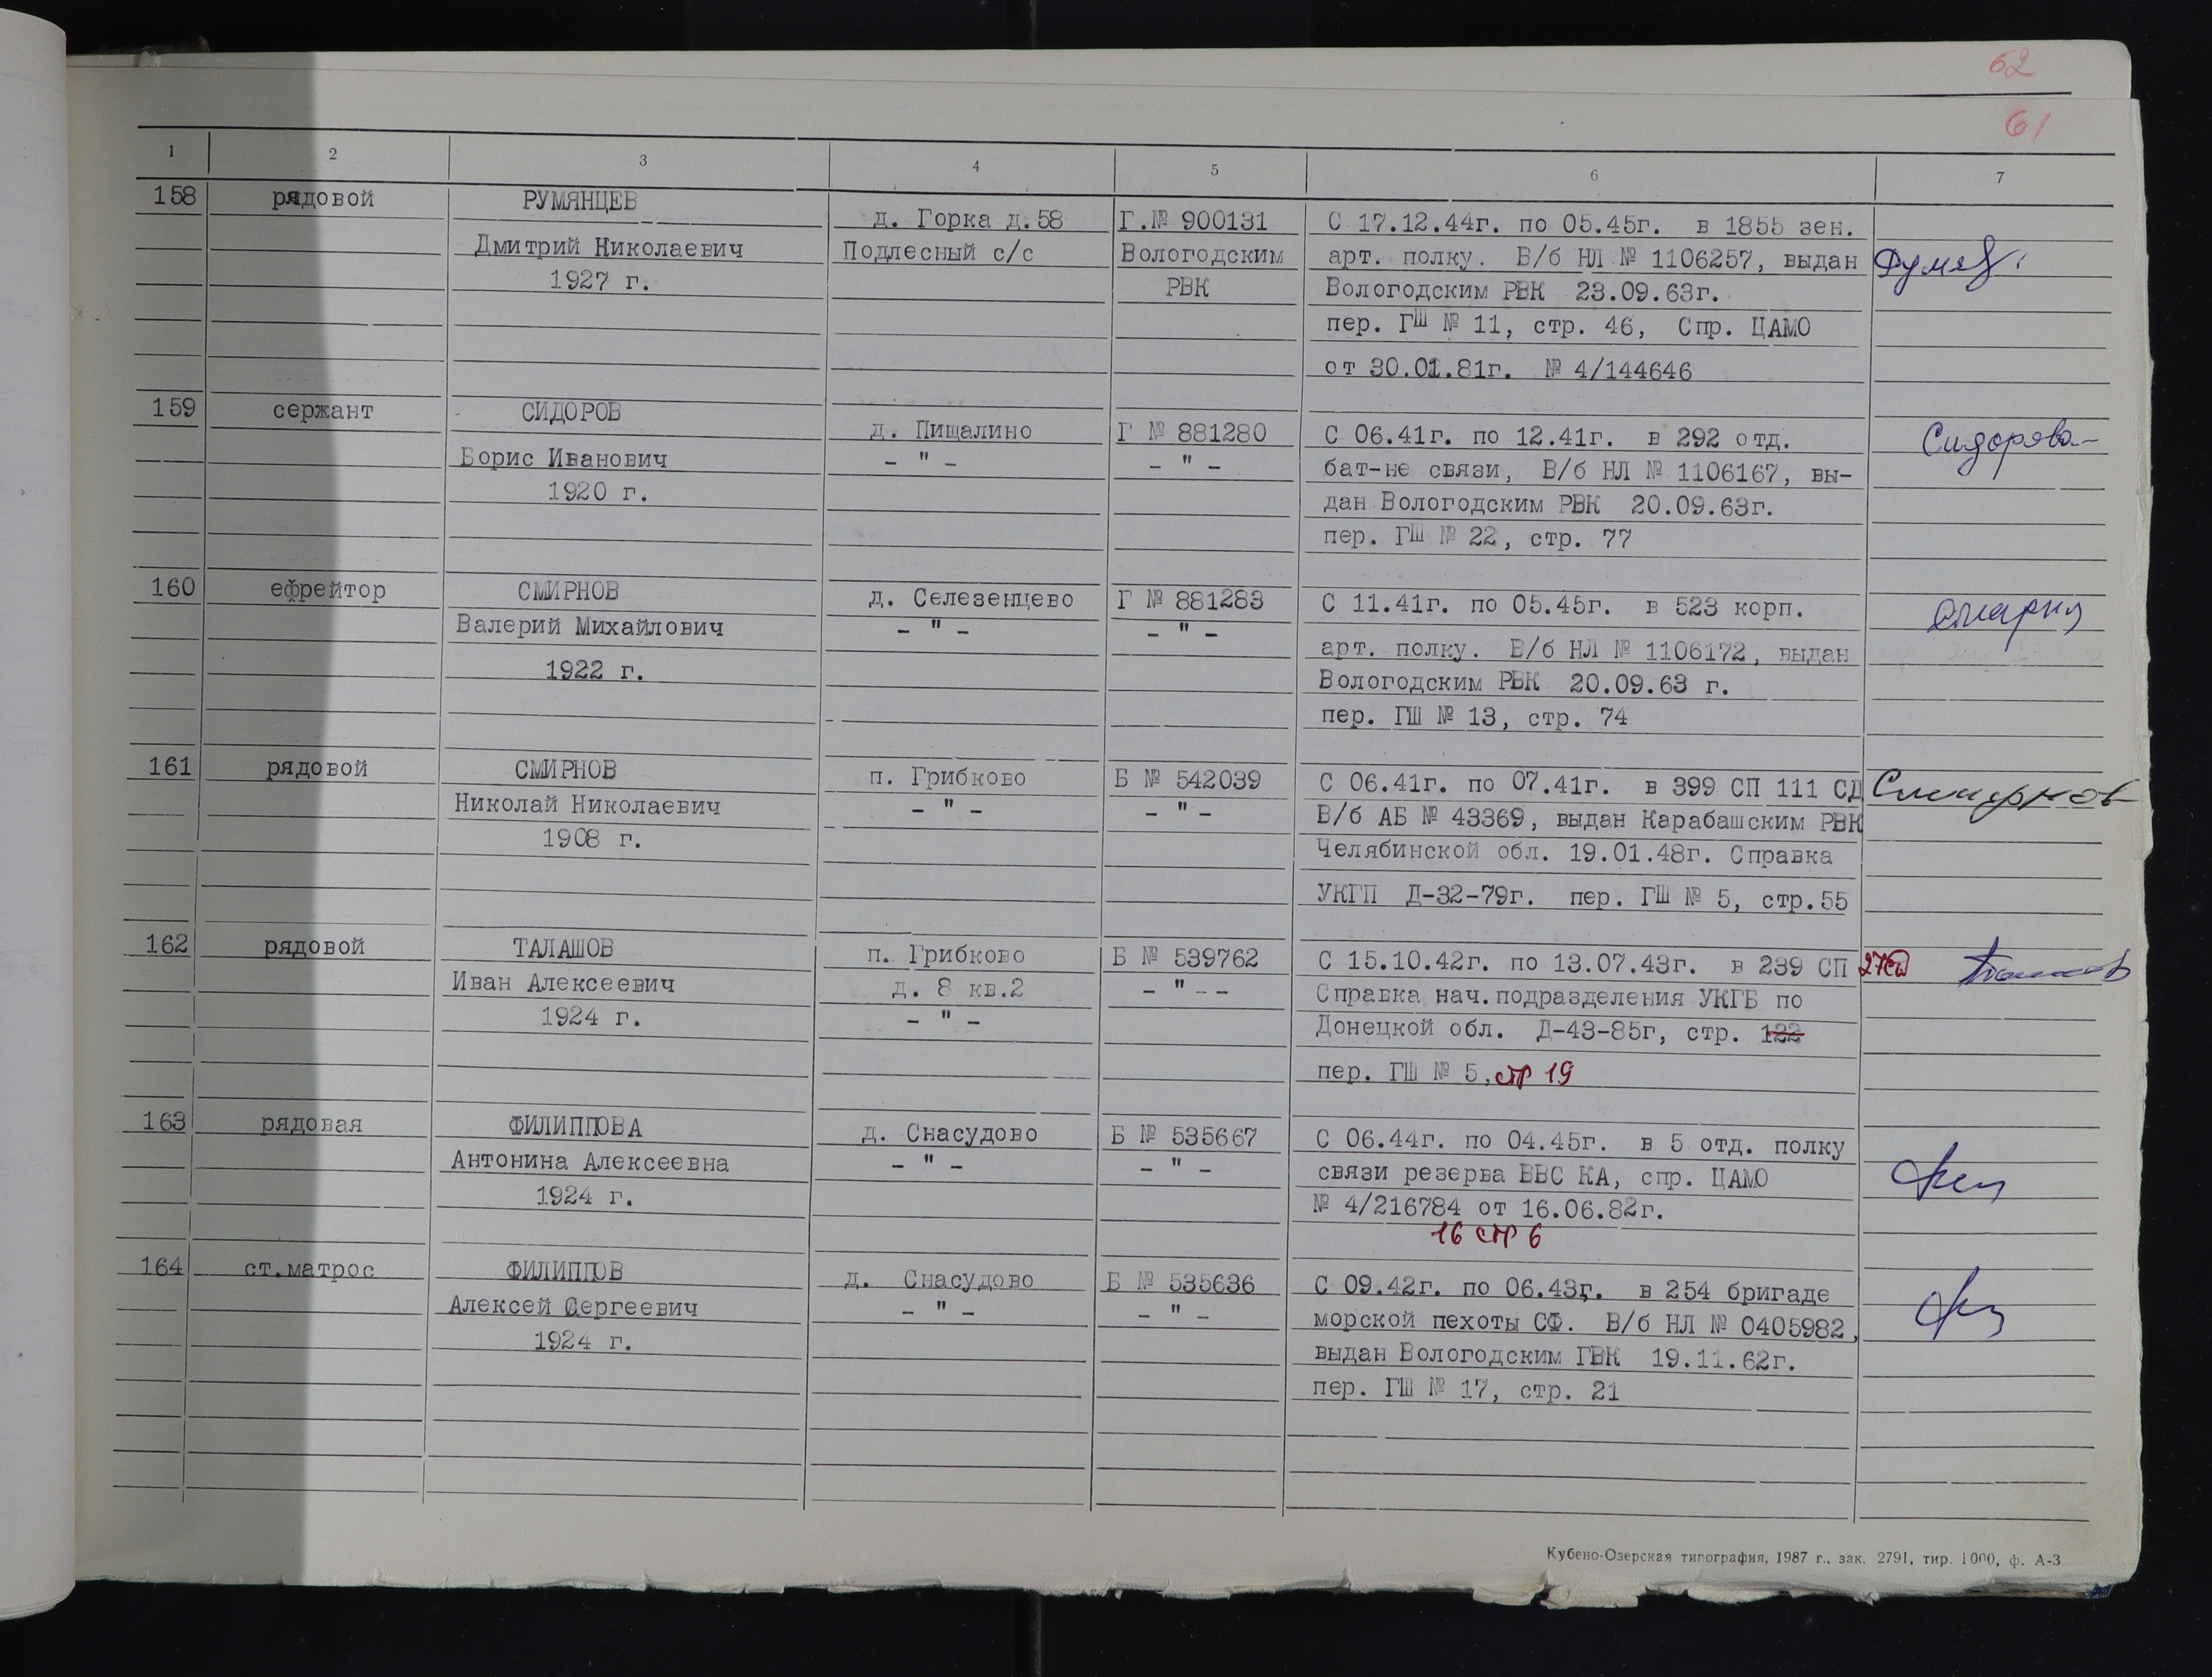 62
61
1 2 3 4 5 6 7
158 рядовой РУМЯНЦЕВ
Дмитрий Николаевич
1927 г.
д. Горка д.58
Подлесный с/с
Г.№ 900131
Вологодским
РВК
С 17.12.44г. по 05.45г. в 1855 зен.
арт. полку. В/б НЛ № 1106257, выдан
Вологодским РВК 23.09.63г.
пер. ГШ № 11, стр. 46, Спр. ЦАМО
от 30.01.81г. № 4/144646
159 сержант СИДОРОВ
Борис Иванович
1920 г.
д. Пищалино
- " -
Г № 881280
- " -
С 06.41г. по 12.41г. в 292 отд.
бат-не связи, В/б НЛ № 1106167, вы-
дан Вологодским РВК 20.09.63г.
пер. ГШ № 22, стр. 77
Сидорова
160 ефрейтор СМИРНОВ
Валерий Михайлович
1922 г.
д. Селезенцево
- " -
Г № 881283
- " -
С 11.41г. по 05.45г. в 523 корп.
арт. полку. В/б НЛ № 1106172, выдан
Вологодским РВК 20.09.63 г.
пер. ГШ № 13, стр. 74
161 рядовой СМИРНОВ
Николай Николаевич
1908 г.
п. Грибково
- " -
Б № 542039
- " -
С 06.41г. по 07.41г. в 399 СП 111 СД
В/б АБ № 43369, выдан Карабашским РВК
Челябинской обл. 19.01.48г. Справка
УКГП Д-32-79г. пер. ГШ № 5, стр.55
Смирнов
162 рядовой ТАЛАШОВ
Иван Алексеевич
1924 г.
п. Грибково
д. 8 кв.2
- " -
Б № 539762
- " - -
С 15.10.42г. по 13.07.43г. в 239 СП 27сд
Справка нач.подразделения УКГБ по
Донецкой обл. Д-43-85г, стр. 122
пер. ГШ № 5, стр 19
163 рядовая ФИЛИППОВА
Антонина Алексеевна
1924 г.
д. Снасудово
- " -
Б № 535667
- " -
С 06.44г. по 04.45г. в 5 отд. полку
связи резерва ВВС КА, спр. ЦАМО
№ 4/216784 от 16.06.82г.
16 стр 6
164 ст.матрос ФИЛИППОВ
Алексей Сергеевич
1924 г.
д. Снасудово
- " -
Б № 535636
- " -
С 09.42г. по 06.43г. в 254 бригаде
морской пехоты СФ. В/б НЛ № 0405982,
выдан Вологодским ГВК 19.11.62г.
пер. ГШ № 17, стр. 21
Кубено-Озерская типография, 1987 г., зак. 2791, тир. 1000, ф. А-3